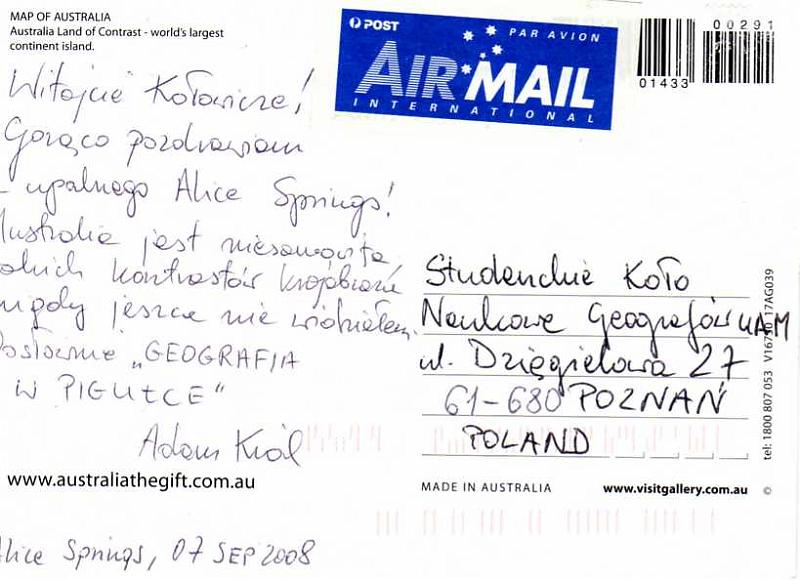 MAP OF AUSTRALIA
Australia Land of Contrast - world's largest
continent island.
POST
PAR AVION
AIR MAIL
INTERNATIONAL
00291
01433
Witajcie Kołowicze!
Gorąco pozdrawiam
upalnego Alice Springs!
Australia jest niesamowita
takich kontrastów krajobrazu
nigdy jeszcze nie widziałem.
Dosłownie „GEOGRAFIA
W PIGUŁCE"
Adam Król
www.australiathegift.com.au
Alice Springs, 07 SEP 2008
Studenckie Koło
Naukowe Geografów UAM
ul. Dzięgielowa 27
61-680 POZNAŃ
POLAND
MADE IN AUSTRALIA
www.visitgallery.com.au ©
tel: 1800 807 053 17AG039